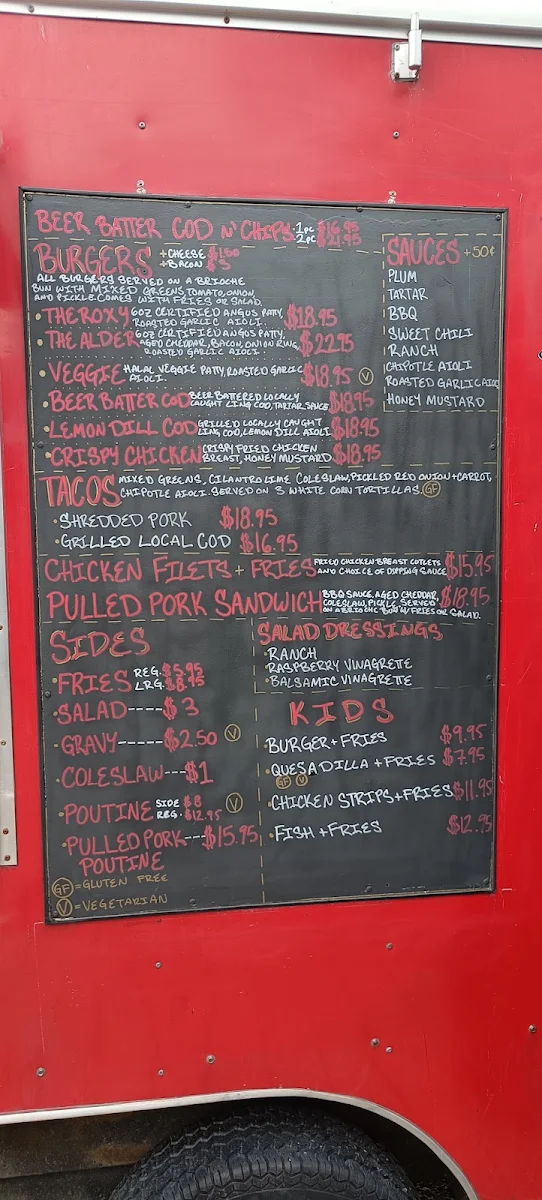 BEER BATTER COD N' CHIPS 1pc $16.95
2pc $21.95
BURGERS +CHEESE $1.50
+BACON $3
ALL BURGERS SERVED ON A BRIOCHE
BUN WITH MIXED GREENS, TOMATO, ONION,
AND PICKLE. COMES WITH FRIES OR SALAD.
• THE ROXY 6OZ CERTIFIED ANGUS PATTY, $18.95
ROASTED GARLIC AIOLI.
• THE ALDER 6OZ CERTIFIED ANGUS PATTY, $22.75
AGED CHEDDAR, BACON, ONION RING,
ROASTED GARLIC AIOLI
• VEGGIE HALAL VEGGIE PATTY, ROASTED GARLIC $18.95 V
AIOLI.
• BEER BATTER COD BEER BATTERED LOCALLY $18.95
CAUGHT LING COD, TARTAR SAUCE
• LEMON DILL COD GRILLED LOCALLY CAUGHT $18.95
LING COD, LEMON DILL AIOLI
• CRISPY CHICKEN CRISPY FRIED CHICKEN $18.95
BREAST, HONEY MUSTARD
SAUCES +50¢
PLUM
TARTAR
BBQ
SWEET CHILI
RANCH
CHIPOTLE AIOLI
ROASTED GARLIC AIOLI
HONEY MUSTARD
TACOS MIXED GREENS, CILANTRO LIME COLESLAW, PICKLED RED ONION + CARROT,
CHIPOTLE AIOLI. SERVED ON 3 WHITE CORN TORTILLAS. GF
• SHREDDED PORK $18.95
• GRILLED LOCAL COD $16.95
CHICKEN FILETS + FRIES FRIED CHICKEN BREAST CUTLETS $15.95
AND CHOICE OF DIPPING SAUCE
PULLED PORK SANDWICH BBQ SAUCE, AGED CHEDDAR, $18.95
COLESLAW, PICKLE, SERVED
ON A BRIOCHE BUN W/ FRIES OR SALAD.
SIDES
• FRIES REG. $5.95
LRG. $8.75
• SALAD----$3
• GRAVY-----$2.50 V
• COLESLAW---$1
• POUTINE SIDE $8 V
REG. $12.95
• PULLED PORK---$15.95
POUTINE
GF = GLUTEN FREE
V = VEGETARIAN
SALAD DRESSINGS
• RANCH
• RASPBERRY VINAGRETTE
• BALSAMIC VINAGRETTE
KIDS
• BURGER + FRIES $9.95
• QUESADILLA + FRIES $7.95
GF V
• CHICKEN STRIPS + FRIES $11.95
• FISH + FRIES $12.95